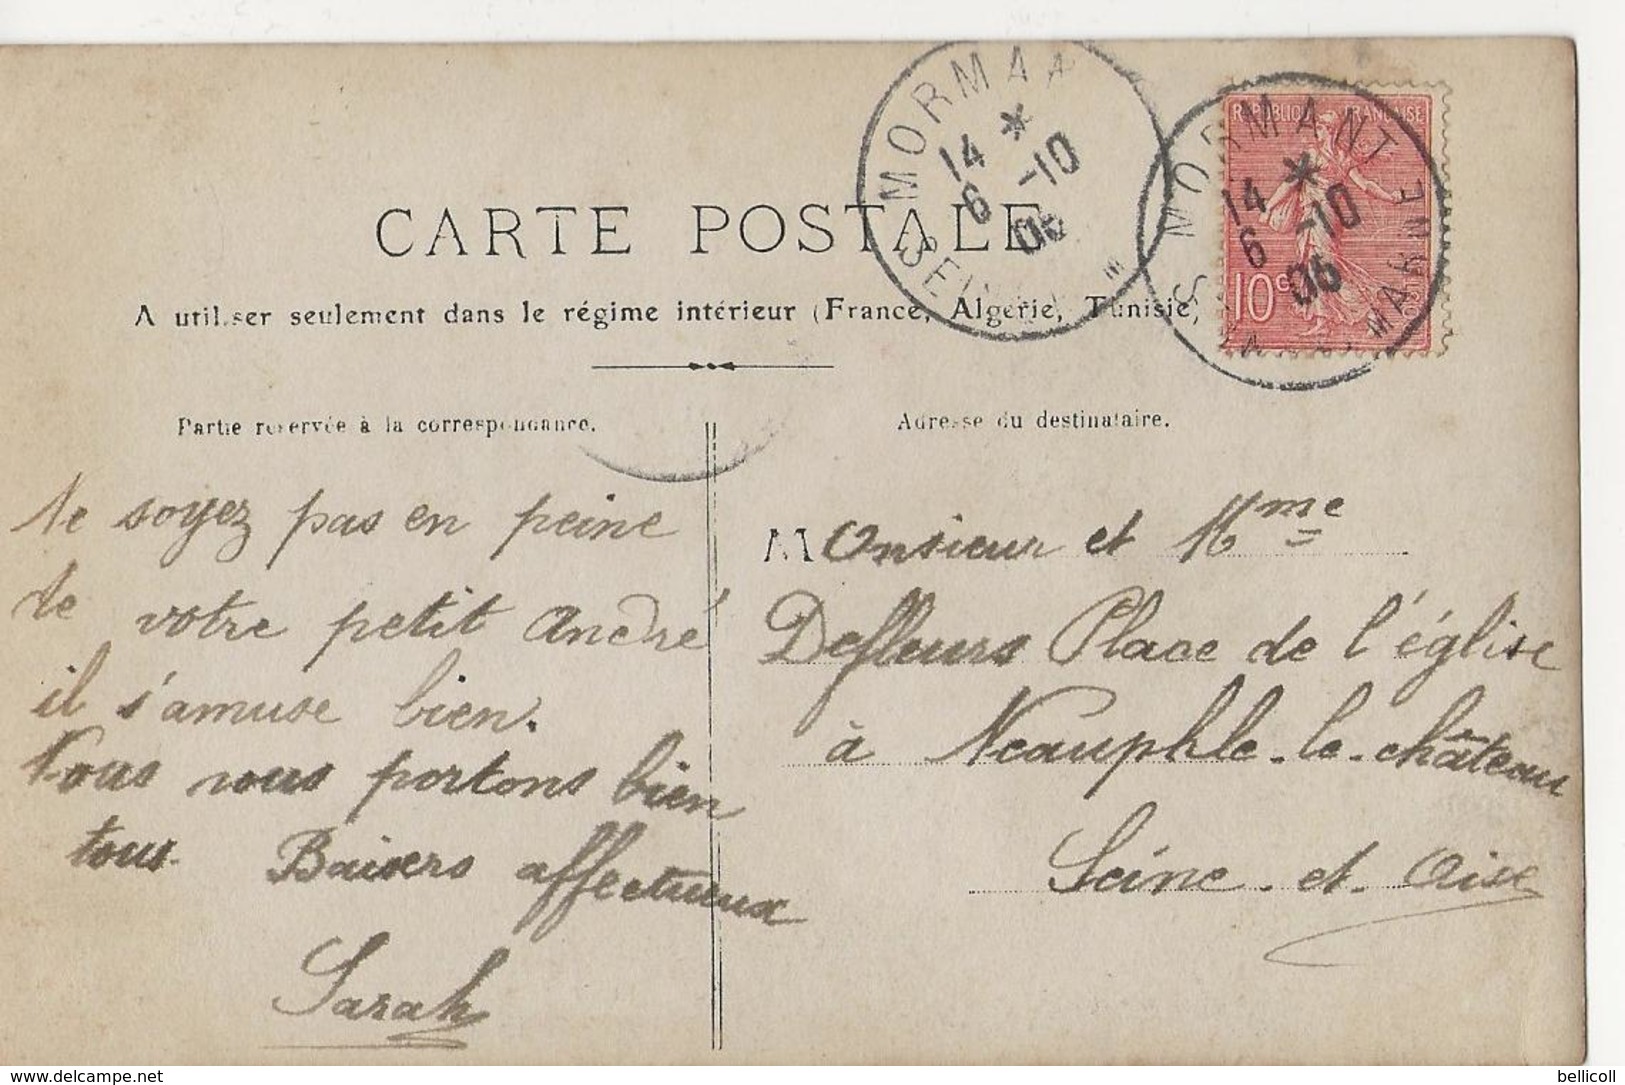 CARTE POSTALE
A utiliser seulement dans le régime intérieur (France, Algérie, Tunisie)
MORMANT
14 *
6 -10
06
MORMANT
SEINE ET MARNE
14 *
6 -10
06
REPUBLIQUE FRANCAISE
10 c
POSTES
Partie reservée à la correspondance.
Ne soyez pas en peine
de votre petit André
il s'amuse bien.
Nous nous portons bien
tous. Baisers affectueux
Sarah
Adresse du destinataire.
Monsieur et Mme
Defleurs Place de l'église
à Neauphle-le-château
Seine-et-Oise
delcampe.net
bellicoll